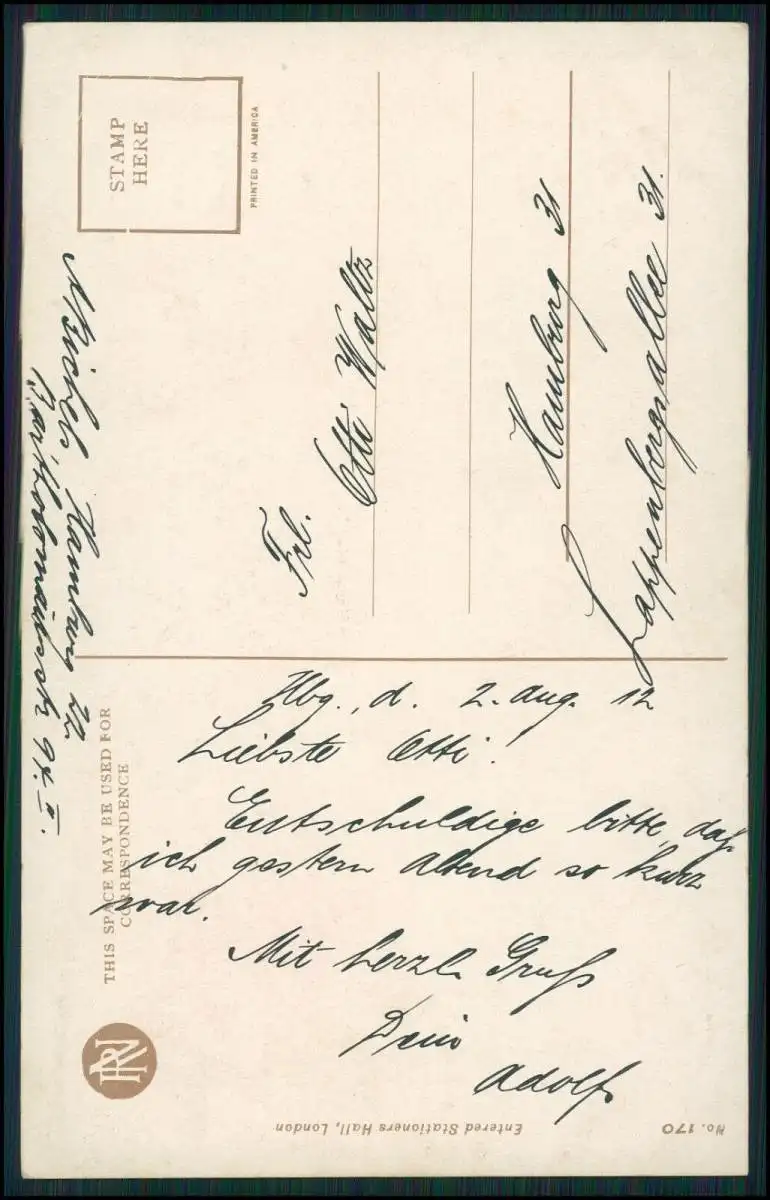 STAMP
HERE
PRINTED IN AMERICA
Frl.
Otti Waltz
Hamburg 31
Lappenbergsallee 31.
Hamburg 22
Bartholomäusstr 94. II.
THIS SPACE MAY BE USED FOR
CORRESPONDENCE
Hbg., d. 2. Aug. 12
Liebste Otti!
Entschuldige bitte, daß
ich gestern Abend so kurz
war.
Mit herzl. Gruß
Dein
Adolf
Entered Stationers Hall, London
No. 170